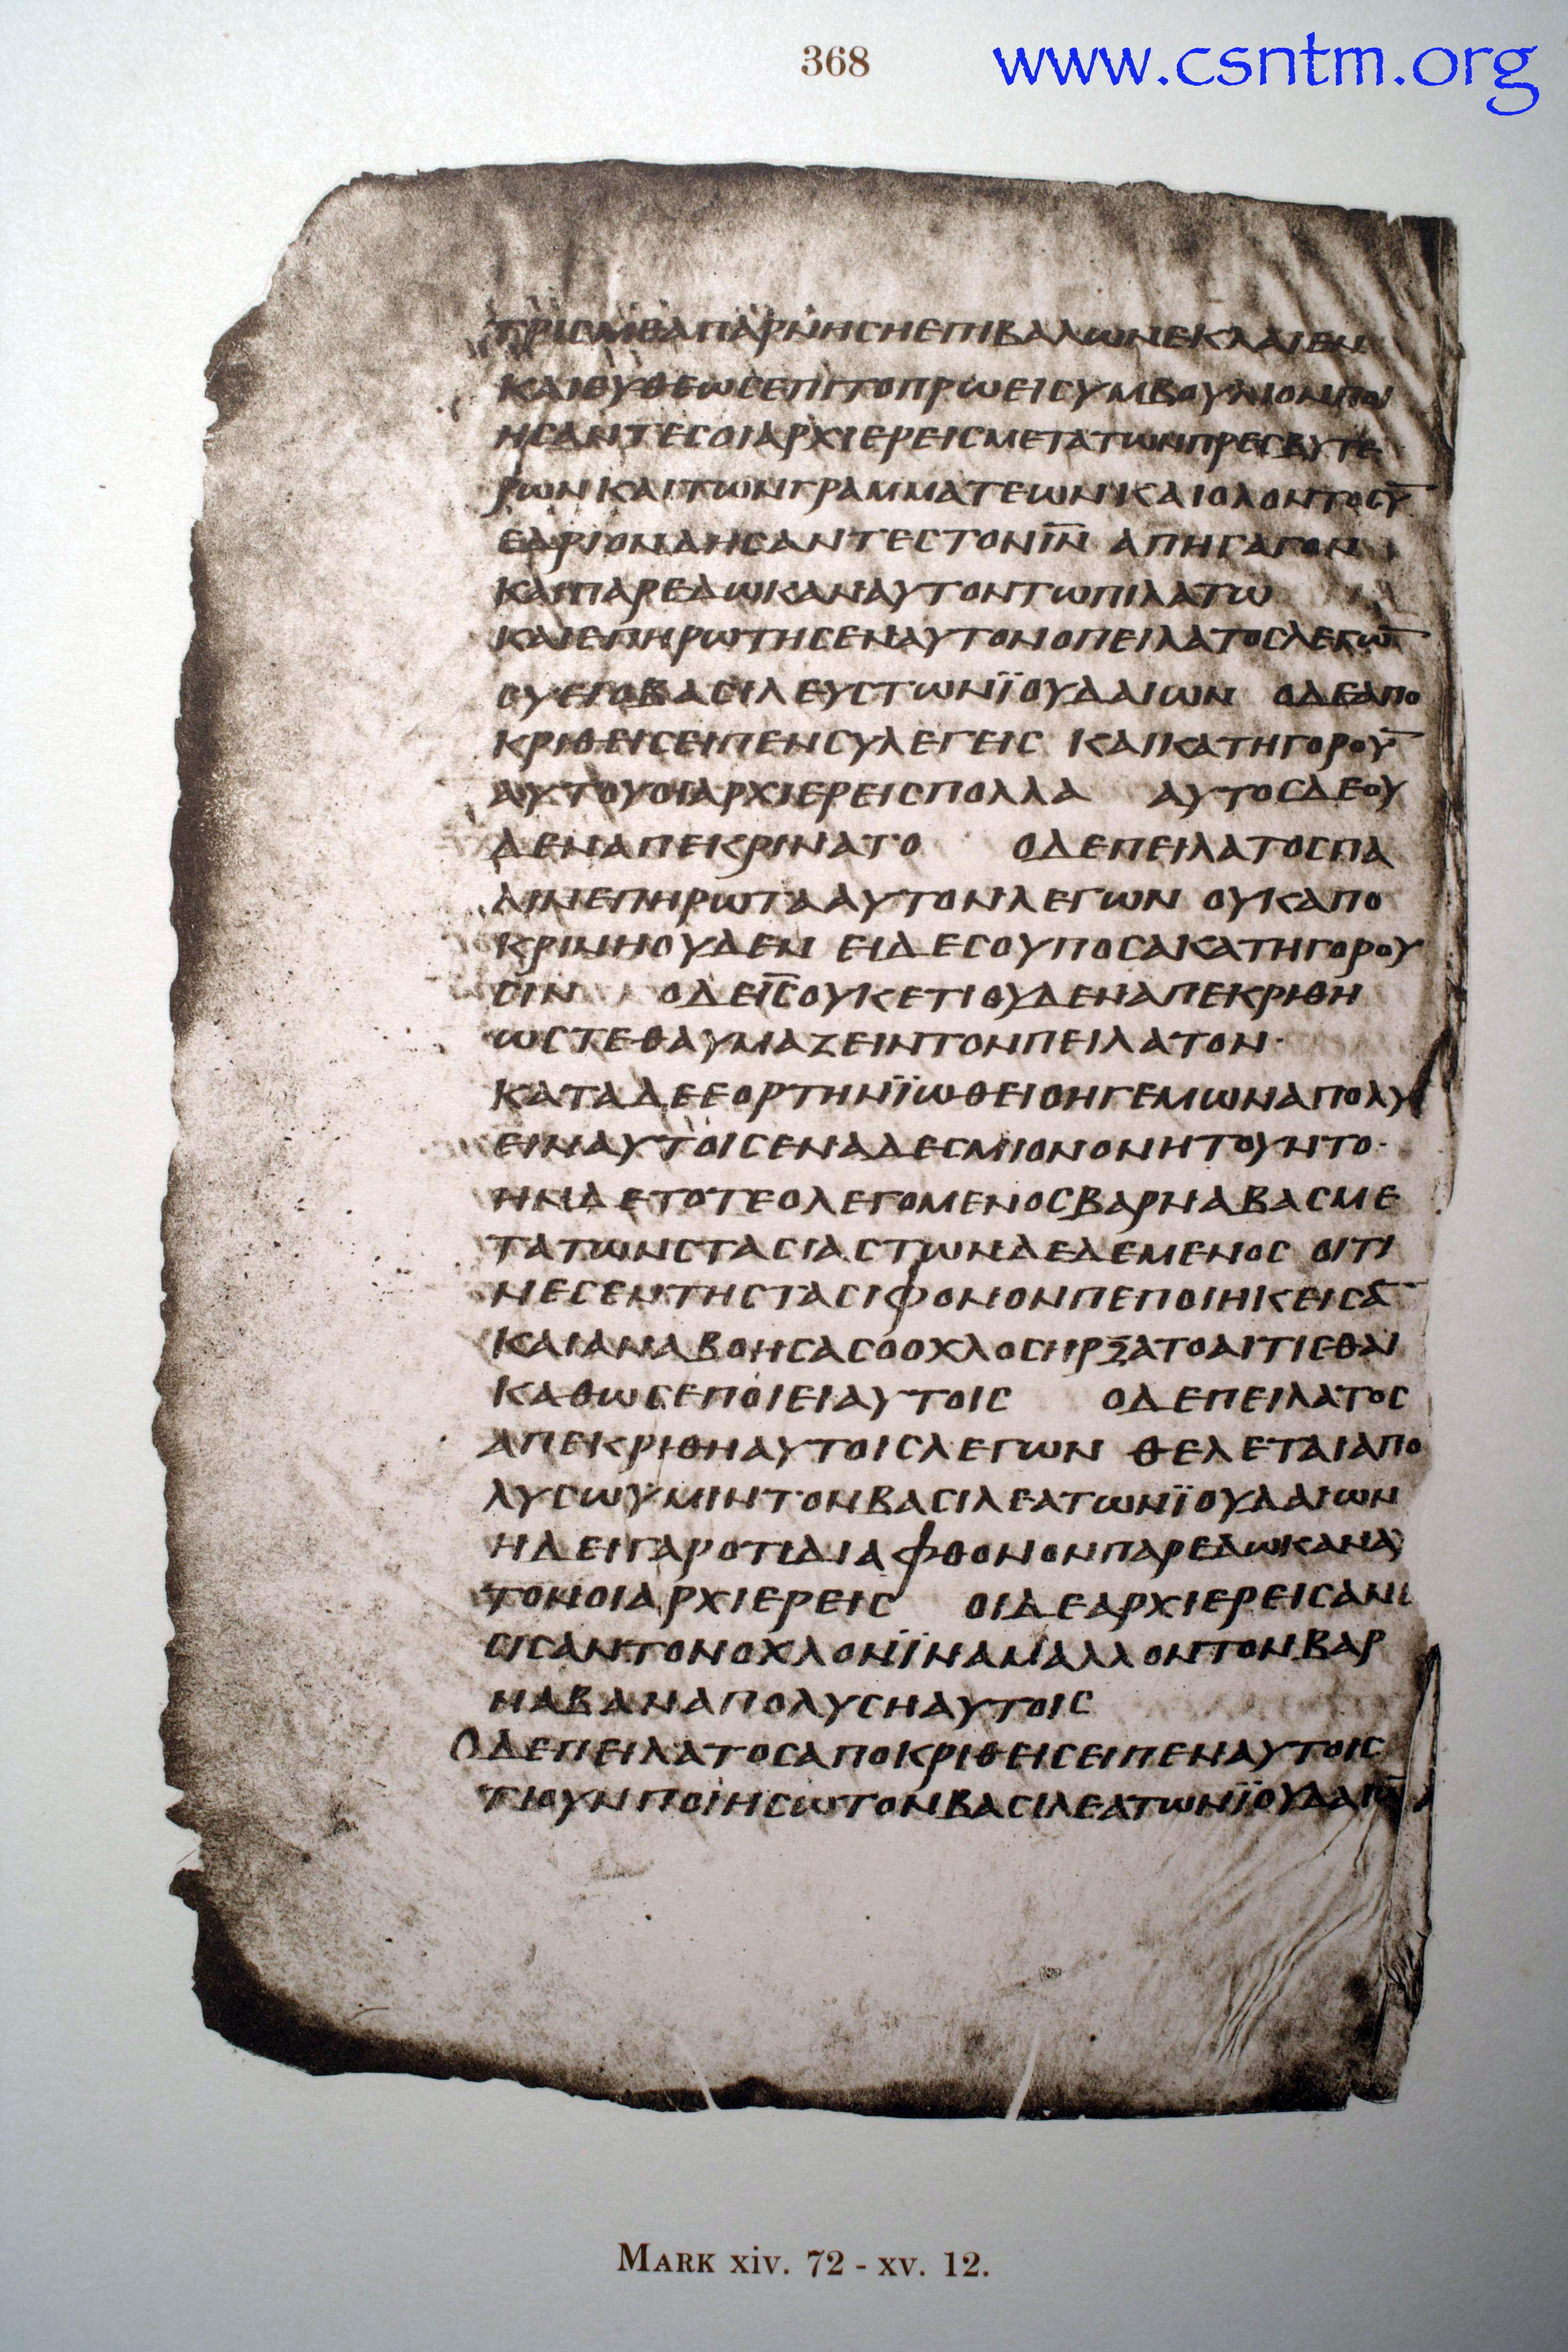 368
www.csntm.org
ΤΡΙCΜΕΑΠΑΡΝΗCΗΕΠΙΒΑΛΩΝΕΚΛΑΙΕΝ
ΚΑΙΕΥΘΕΩCΕΠΙΤΟΠΡΩΕΙCΥΜΒΟΥΛΙΟΝΠΟΙ
ΗCΑΝΤΕCΟΙΑΡΧΙΕΡΕΙCΜΕΤΑΤΩΝΠΡΕCΒΥΤΕ
ΡΩΝΚΑΙΤΩΝΓΡΑΜΜΑΤΕΩΝΚΑΙΟΛΟΝΤΟCΥ̅
ΕΔΡΙΟΝΔΗCΑΝΤΕCΤΟΝΙ̅Ν̅ ΑΠΗΓΑΓΟΝ
ΚΑΙΠΑΡΕΔΩΚΑΝΑΥΤΟΝΤΩΠΙΛΑΤΩ
ΚΑΙΕΠΗΡΩΤΗCΕΝΑΥΤΟΝΟΠΕΙΛΑΤΟCΛΕΓΩ̅
CΥΕΙΟΒΑCΙΛΕΥCΤΩΝΪΟΥΔΑΙΩΝ ΟΔΕΑΠΟ
ΚΡΙΘΕΙCΕΙΠΕΝCΥΛΕΓΕΙC ΚΑΙΚΑΤΗΓΟΡΟΥ̅
ΑΥΤΟΥΟΙΑΡΧΙΕΡΕΙCΠΟΛΛΑ ΑΥΤΟCΔΕΟΥ
ΔΕΝΑΠΕΚΡΙΝΑΤΟ ΟΔΕΠΕΙΛΑΤΟCΠΑ
ΛΙΝΕΠΗΡΩΤΑΑΥΤΟΝΛΕΓΩΝ ΟΥΚΑΠΟ
ΚΡΙΝΗΟΥΔΕΝ ΕΙΔΕCΟΥΠΟCΑΚΑΤΗΓΟΡΟΥ
CΙΝ ΟΔΕΙ̅C̅ΟΥΚΕΤΙΟΥΔΕΝΑΠΕΚΡΙΘΗ
ΩCΤΕΘΑΥΜΑΖΕΙΝΤΟΝΠΕΙΛΑΤΟΝ·
ΚΑΤΑΔΕΕΟΡΤΗΝΪΩΘΕΙΟΗΓΕΜΩΝΑΠΟΛΥ
ΕΙΝΑΥΤΟΙCΕΝΑΔΕCΜΙΟΝΟΝΗΤΟΥΝΤΟ·
ΗΝΔΕΤΟΤΕΟΛΕΓΟΜΕΝΟCΒΑΡΝΑΒΑCΜΕ
ΤΑΤΩΝCΤΑCΙΑCΤΩΝΔΕΔΕΜΕΝΟC ΟΙΤΙ
ΝΕCΕΝΤΗCΤΑCΙΦΟΝΟΝΠΕΠΟΙΗΚΕΙCΑ̅
ΚΑΙΑΝΑΒΟΗCΑCΟΟΧΛΟCΗΡΞΑΤΟΑΙΤΙCΘΑΙ
ΚΑΘΩCΕΠΟΙΕΙΑΥΤΟΙC ΟΔΕΠΕΙΛΑΤΟC
ΑΠΕΚΡΙΘΗΑΥΤΟΙCΛΕΓΩΝ ΘΕΛΕΤΑΙΑΠΟ
ΛΥCΩΥΜΙΝΤΟΝΒΑCΙΛΕΑΤΩΝΪΟΥΔΑΙΩΝ
ΗΔΕΙΓΑΡΟΤΙΔΙΑΦΘΟΝΟΝΠΑΡΕΔΩΚΑΝΑΥ
ΤΟΝΟΙΑΡΧΙΕΡΕΙC ΟΙΔΕΑΡΧΙΕΡΕΙCΑΝΕ
CΙCΑΝΤΟΝΟΧΛΟΝΪΝΑΜΑΛΛΟΝΤΟΝΒΑΡ
ΝΑΒΑΝΑΠΟΛΥCΗΑΥΤΟΙC
ΟΔΕΠΕΙΛΑΤΟCΑΠΟΚΡΙΘΕΙCΕΙΠΕΝΑΥΤΟΙC
ΤΙΟΥΝΠΟΙΗCΩΤΟΝΒΑCΙΛΕΑΤΩΝΪΟΥΔΑΙΩ̅
MARK xiv. 72 - xv. 12.